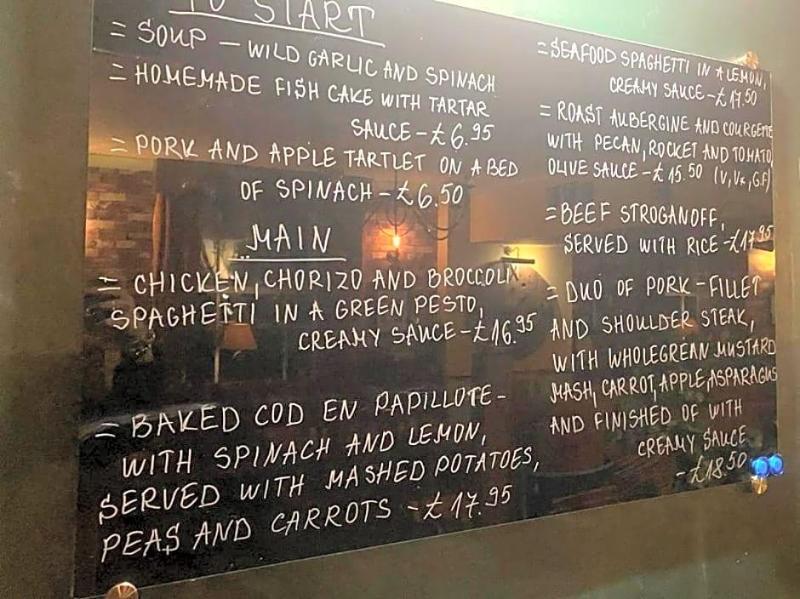 TO START
= SOUP – WILD GARLIC AND SPINACH
= HOMEMADE FISH CAKE WITH TARTAR
SAUCE – £6.95
= PORK AND APPLE TARTLET ON A BED
OF SPINACH – £6.50
MAIN
= CHICKEN, CHORIZO AND BROCCOLINI
SPAGHETTI IN A GREEN PESTO,
CREAMY SAUCE – £16.95
= BAKED COD EN PAPILLOTE –
WITH SPINACH AND LEMON,
SERVED WITH MASHED POTATOES,
PEAS AND CARROTS – £17.95
= SEAFOOD SPAGHETTI IN A LEMON,
CREAMY SAUCE – £17.50
= ROAST AUBERGINE AND COURGETTE
WITH PECAN, ROCKET AND TOMATO,
OLIVE SAUCE – £15.50 (V, VE, G.F)
= BEEF STROGANOFF,
SERVED WITH RICE – £17.95
= DUO OF PORK – FILLET
AND SHOULDER STEAK,
WITH WHOLEGREAN MUSTARD
MASH, CARROT, APPLE, ASPARAGUS
AND FINISHED OF WITH
CREAMY SAUCE
– £18.50